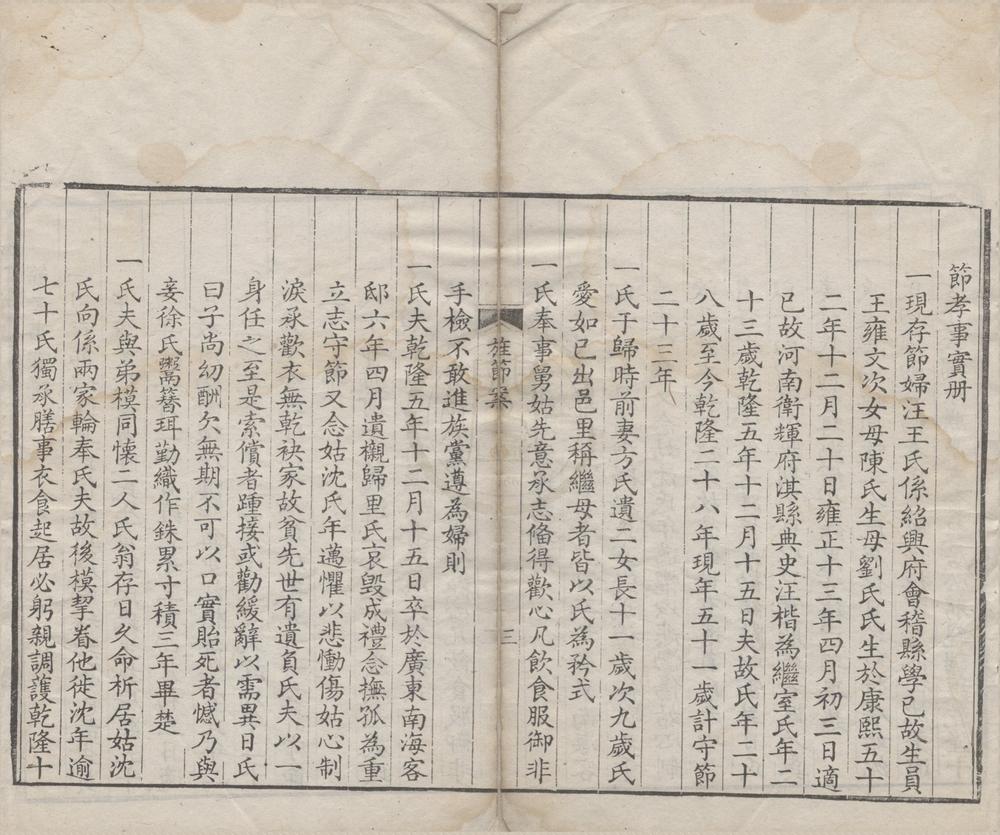 節孝事實册
一現存節婦汪王氏係紹興府會稽縣學已故生員
王雍文次女母陳氏生母劉氏氏生於康熙五十
二年十二月二十日雍正十三年四月初三日適
已故河南衛輝府淇縣典史汪楷為繼室氏年二
十三歲乾隆五年十二月十五日夫故氏年二十
八歲至今乾隆二十八年現年五十一歲計守節
二十三年
一氏于歸時前妻方氏遺二女長十一歲次九歲氏
愛如已出邑里稱繼母者皆以氏為矜式
一氏奉事舅姑先意承志俻得歡心凡飲食服御非
旌節案
三
手檢不敢進族黨遵為婦則
一氏夫乾隆五年十二月十五日卒於廣東南海客
邸六年四月遺櫬歸里氏哀毀成禮念撫孤為重
立志守節又念姑沈氏年邁懼以悲慟傷姑心制
淚承歡衣無乾袂家故貧先世有遺負氏夫以一
身任之至是索償者踵接或勸緩辭以需異日氏
曰子尚幼酬欠無期不可以口實貽死者憾乃與
妾徐氏鬻簪珥勤織作銖累寸積三年畢楚
一氏夫與弟模同懷二人氏翁存日久命析居姑沈
氏向係兩家輪奉氏夫故後模挈眷他徙沈年逾
七十氏獨承膳事衣食起居必躬親調護乾隆十